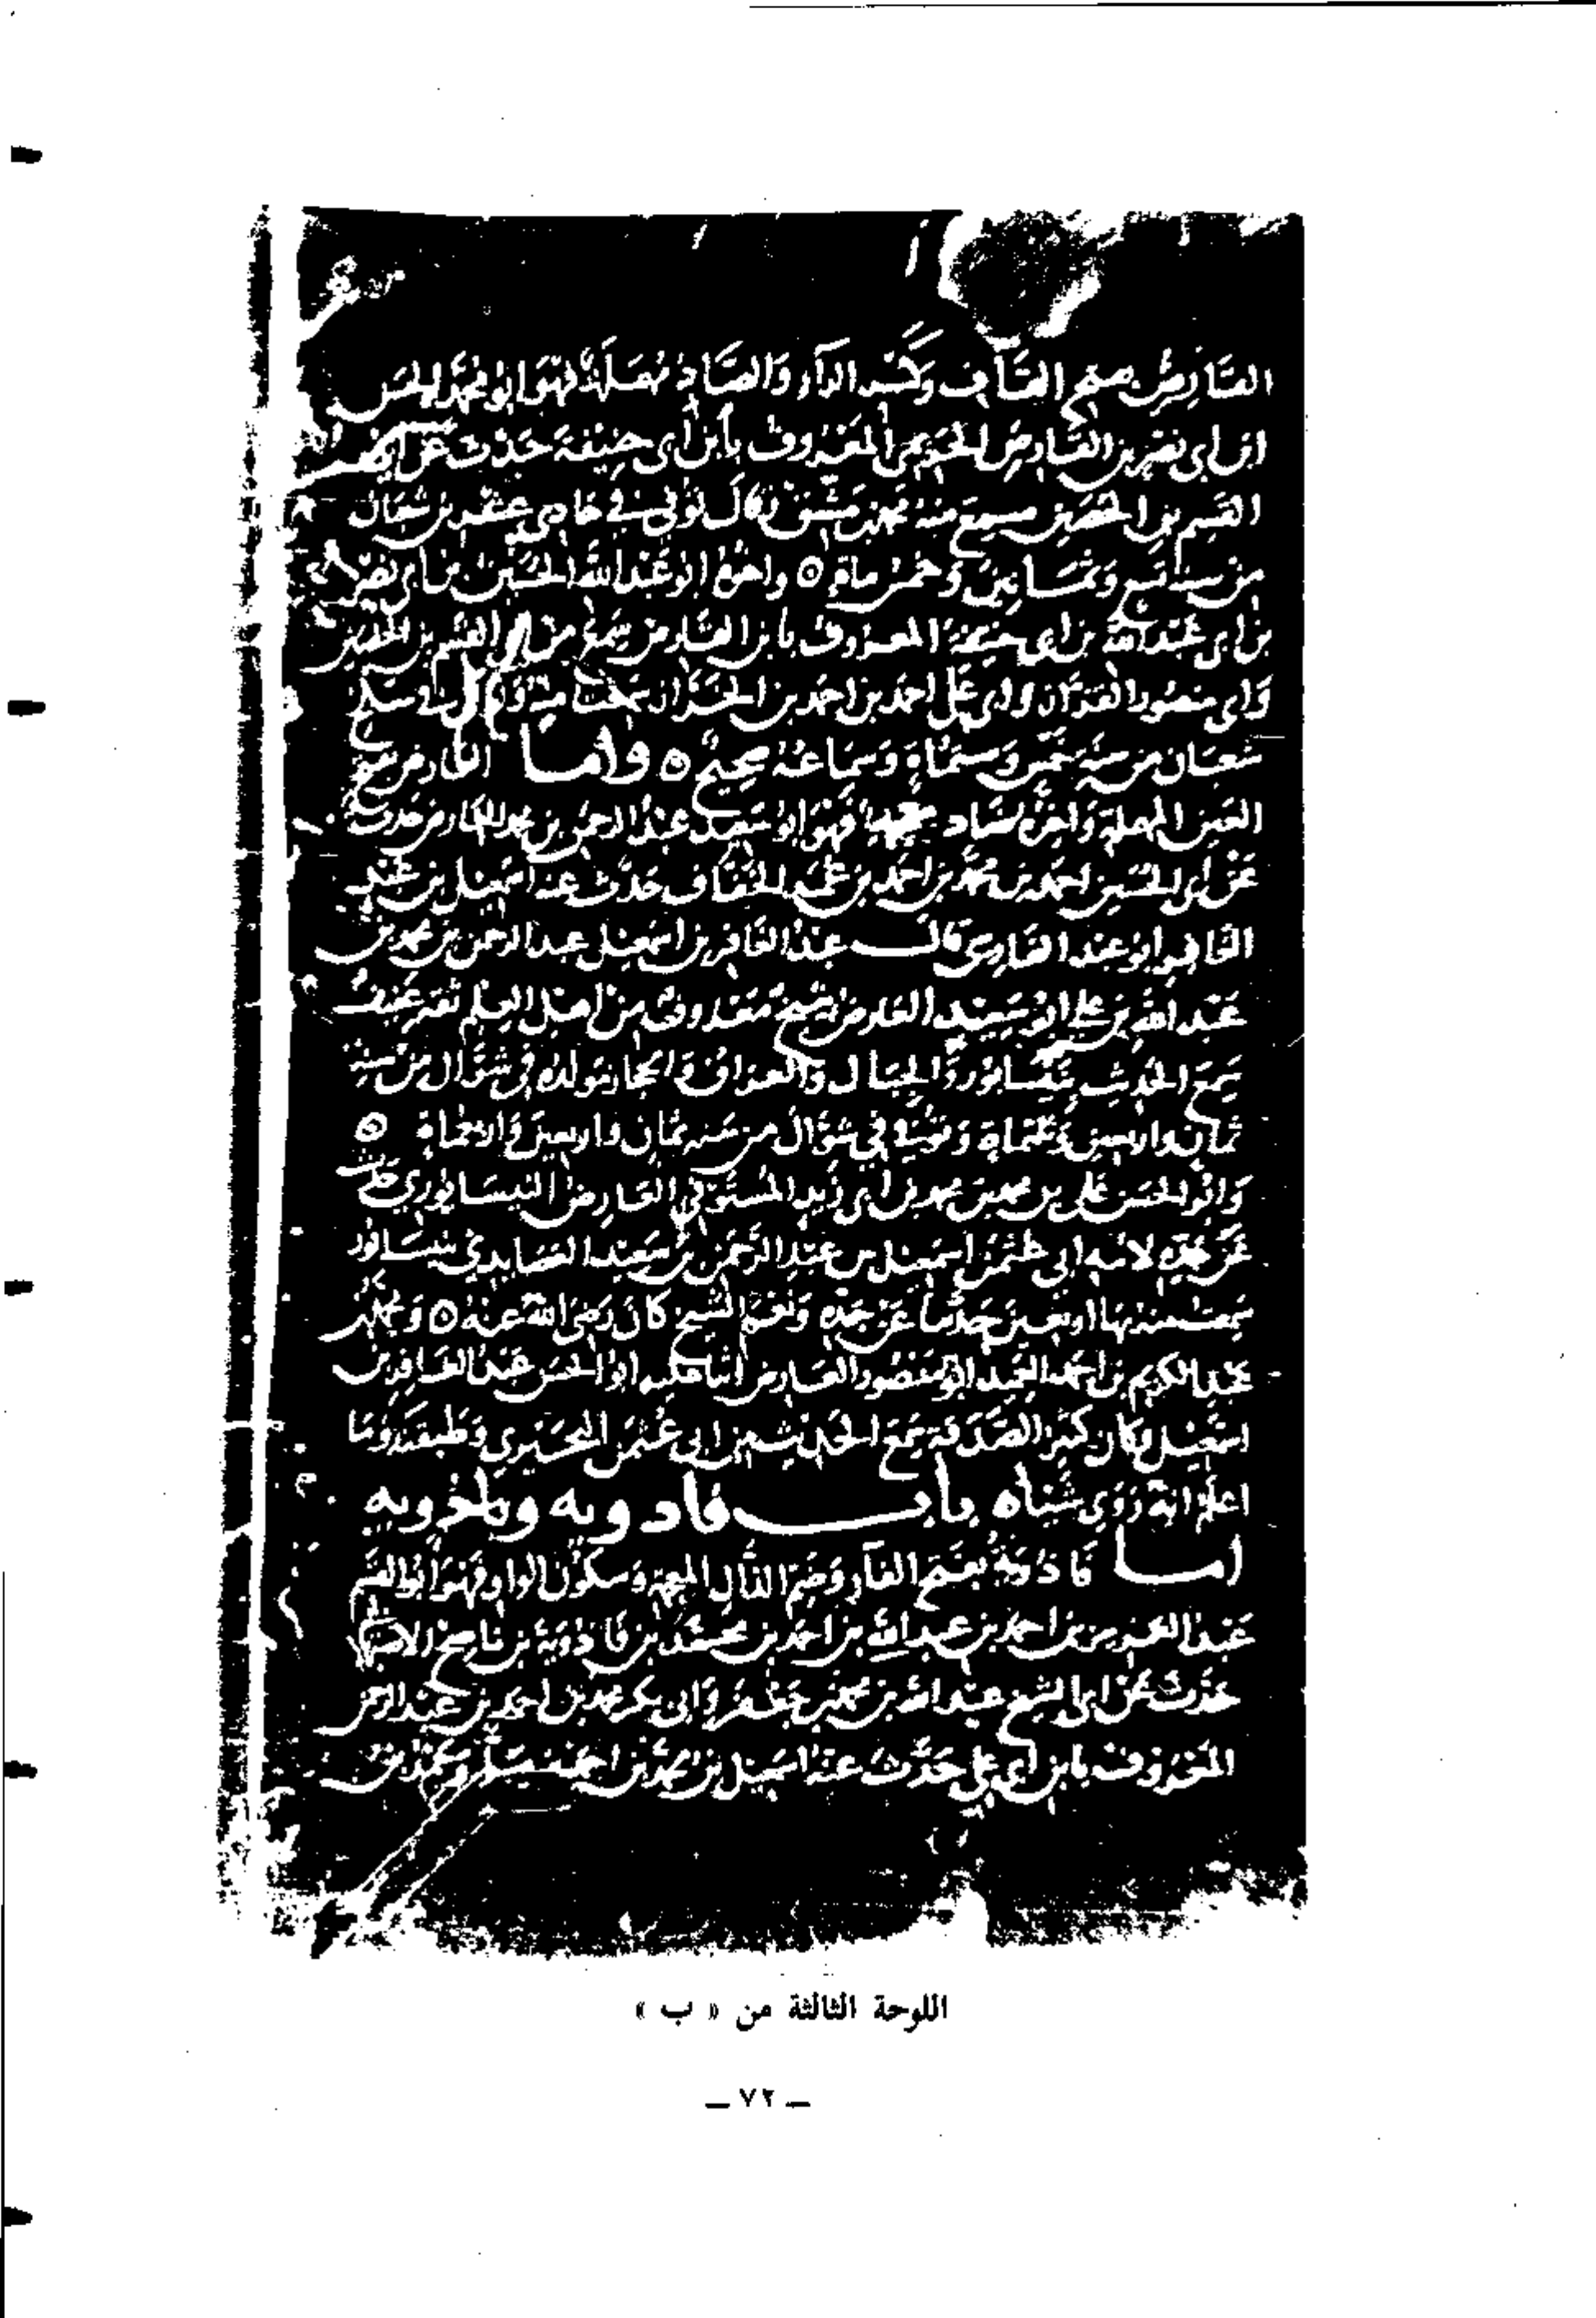 القارص بفتح القاف وكسر الراء والصاد مهملة فهو ابو محمد الحسن
ابن ابي نصر بن القارص الحريمي المعروف بابن ابي حنيفة حدث عن ابي
القسم بن الحصين سمع منه محمد بن مشق وقال توفي في حادي عشر بن شعبان
من سنة وثمانين وخمس مائة ٥ واخوه ابو عبد الله الحسين بن ابي نصر
بن ابي عبد الله بن ابي حنيفة المعروف بابن القارص سمع من ابي القسم بن الحصين
وابي منصور القزاز وابي علي احمد بن احمد بن الخراز سمعت منه
شعبان من سنة خمس وستمائة وسماعه صحيح ٥ واما بفتح
العين المهملة واخره ضاد معجمة فهو ابو سعيد عبد الرحمن بن محمد العارض حدث
عن ابي الحسين احمد بن محمد بن احمد بن عمر الخفاف حدث عنه اسمعيل بن
ابو عبد الفارسي قال عبد الغافر بن اسمعيل عبد الرحمن بن محمد بن
عبد الله بن علي ابو سعيد العارض شيخ معروف من اهل العلم
سمع الحديث بنيسابور والجبال والعراق والحجاز مولده في شوال من سنة
ثمان واربعين وثلثماة وتوفي في شوال من سنة ثمان واربعين واربعماة ٥
وابو الحسن علي بن محمد بن محمد بن ابي زيد المستوفي العارض النيسابوري حدث
عن جده لامه ابي عثمن اسمعيل بن عبد الرحمن بن سعيد العصايدي بنيسابور
سمعت منه بها اربعين حديثا عن جده ونعم الشيخ كان رضي الله عنه ٥ ومحمد
بن عبد الكريم بن احمد العميد ابو منصور العارض اثنا عليه ابو الحسن عبد الغافر بن
اسمعيل وقال كثير الصدقة سمع الحديث من ابي عثمن البحيري وطبقته وما
اعلم انه روى شيا ٥ باب فاذويه وماذويه
اما فاذويه بفتح الفاء وضم الذال المعجمة وسكون الواو فهو ابو القسم
عبد العزيز بن احمد بن عبد الله بن احمد بن محمد بن فاذويه بن
حدث عن ابي الشيخ عبد الله بن محمد بن جعفر وابي بكر محمد بن احمد بن عبد الرحمن
المعروف بابن ابي علي حدث عنه اسمعيل بن محمد بن احمد بن ومحمد بن
اللوحة الثالثة من « ب »
— ٧٢ —